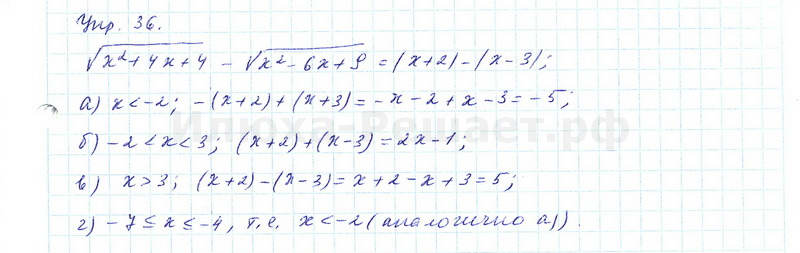 Упр. 36.
√(x²+4x+4) - √(x²-6x+9) = |x+2|-|x-3|;
а) x<-2; -(x+2)+(x+3)=-x-2+x-3=-5;
Илюха-Решает.рф
б) -2<x<3; (x+2)+(x-3)=2x-1;
в) x>3; (x+2)-(x-3)=x+2-x+3=5;
г) -7≤x≤-4, т.е. x<-2 (аналогично а)).